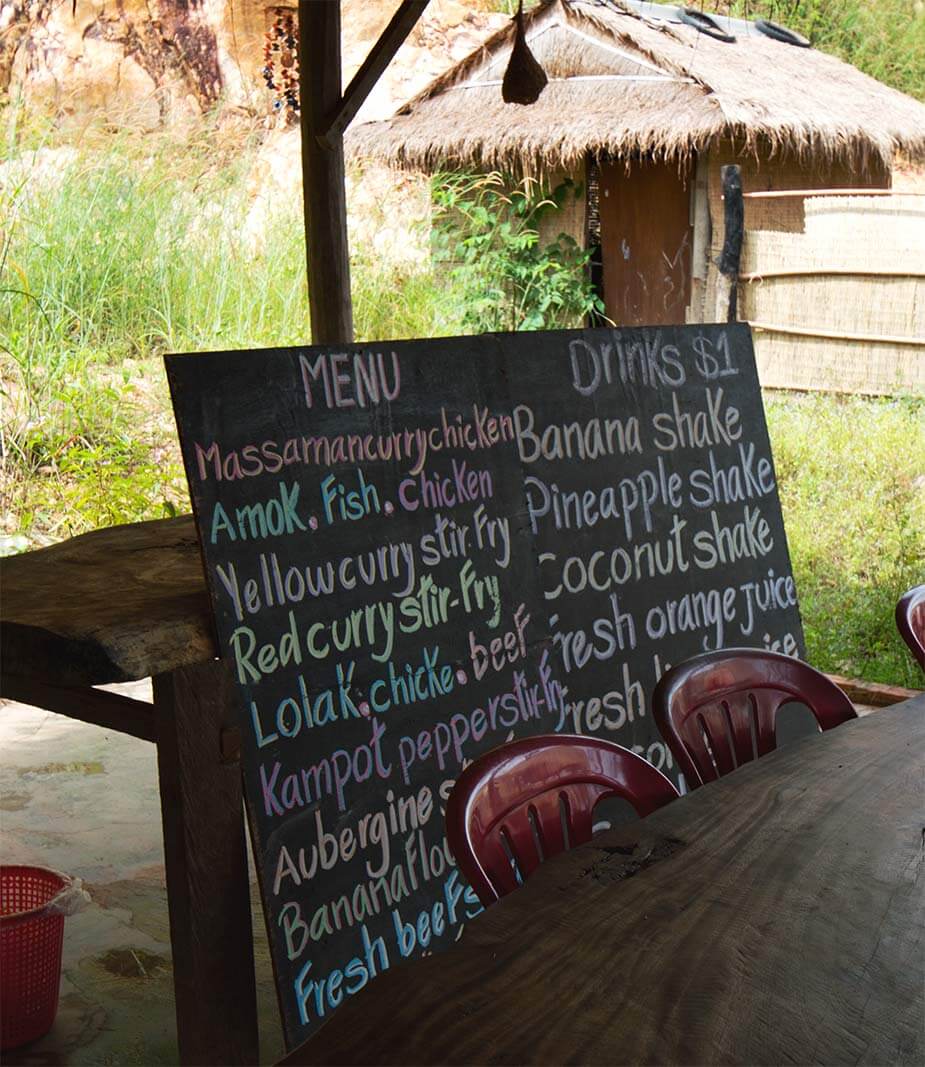 MENU
Massamancurrychicken
Amok. Fish. chicken
Yellowcurry stir Fry
Redcurry stir-Fry
Lolak.chicke.beef
Kampot pepperstir-Fry
Aubergine
Banana
Fresh beef
Drinks $1
Banana shake
Pineapple shake
Coconut shake
Fresh orange juice
Fresh